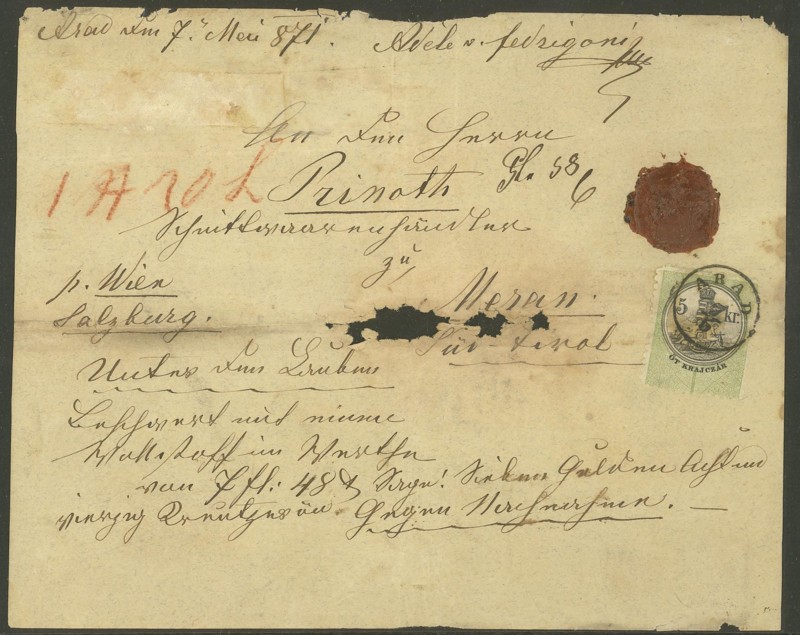 Arad den 7. Mai 871. Adele v. Fedrigoni
An den Herrn
Prinoth
Schnittwaarenhändler
zu
p. Wien
Meran.
Salzburg.
Süd-Tirol
Unter den Lauben
Beschwert mit einem
Wollstoff im Werthe
von 7 fl: 48 Sage! Sieben Gulden Acht und
vierzig Kreutzer öW. Gegen Nachnahme.
ARAD
5 kr.
ÖT KRAJCZÁR